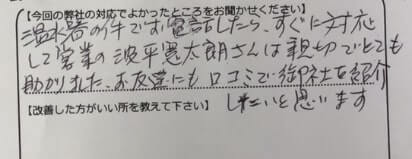 【今回の弊社の対応でよかったところをお聞かせください】
温水器の件でお電話したら、すぐに対応
して営業の波平憲太朗さんは親切でとても
助かりました、お友達にも口コミで御社を紹介
したいと思います
【改善した方がいい所を教えて下さい】